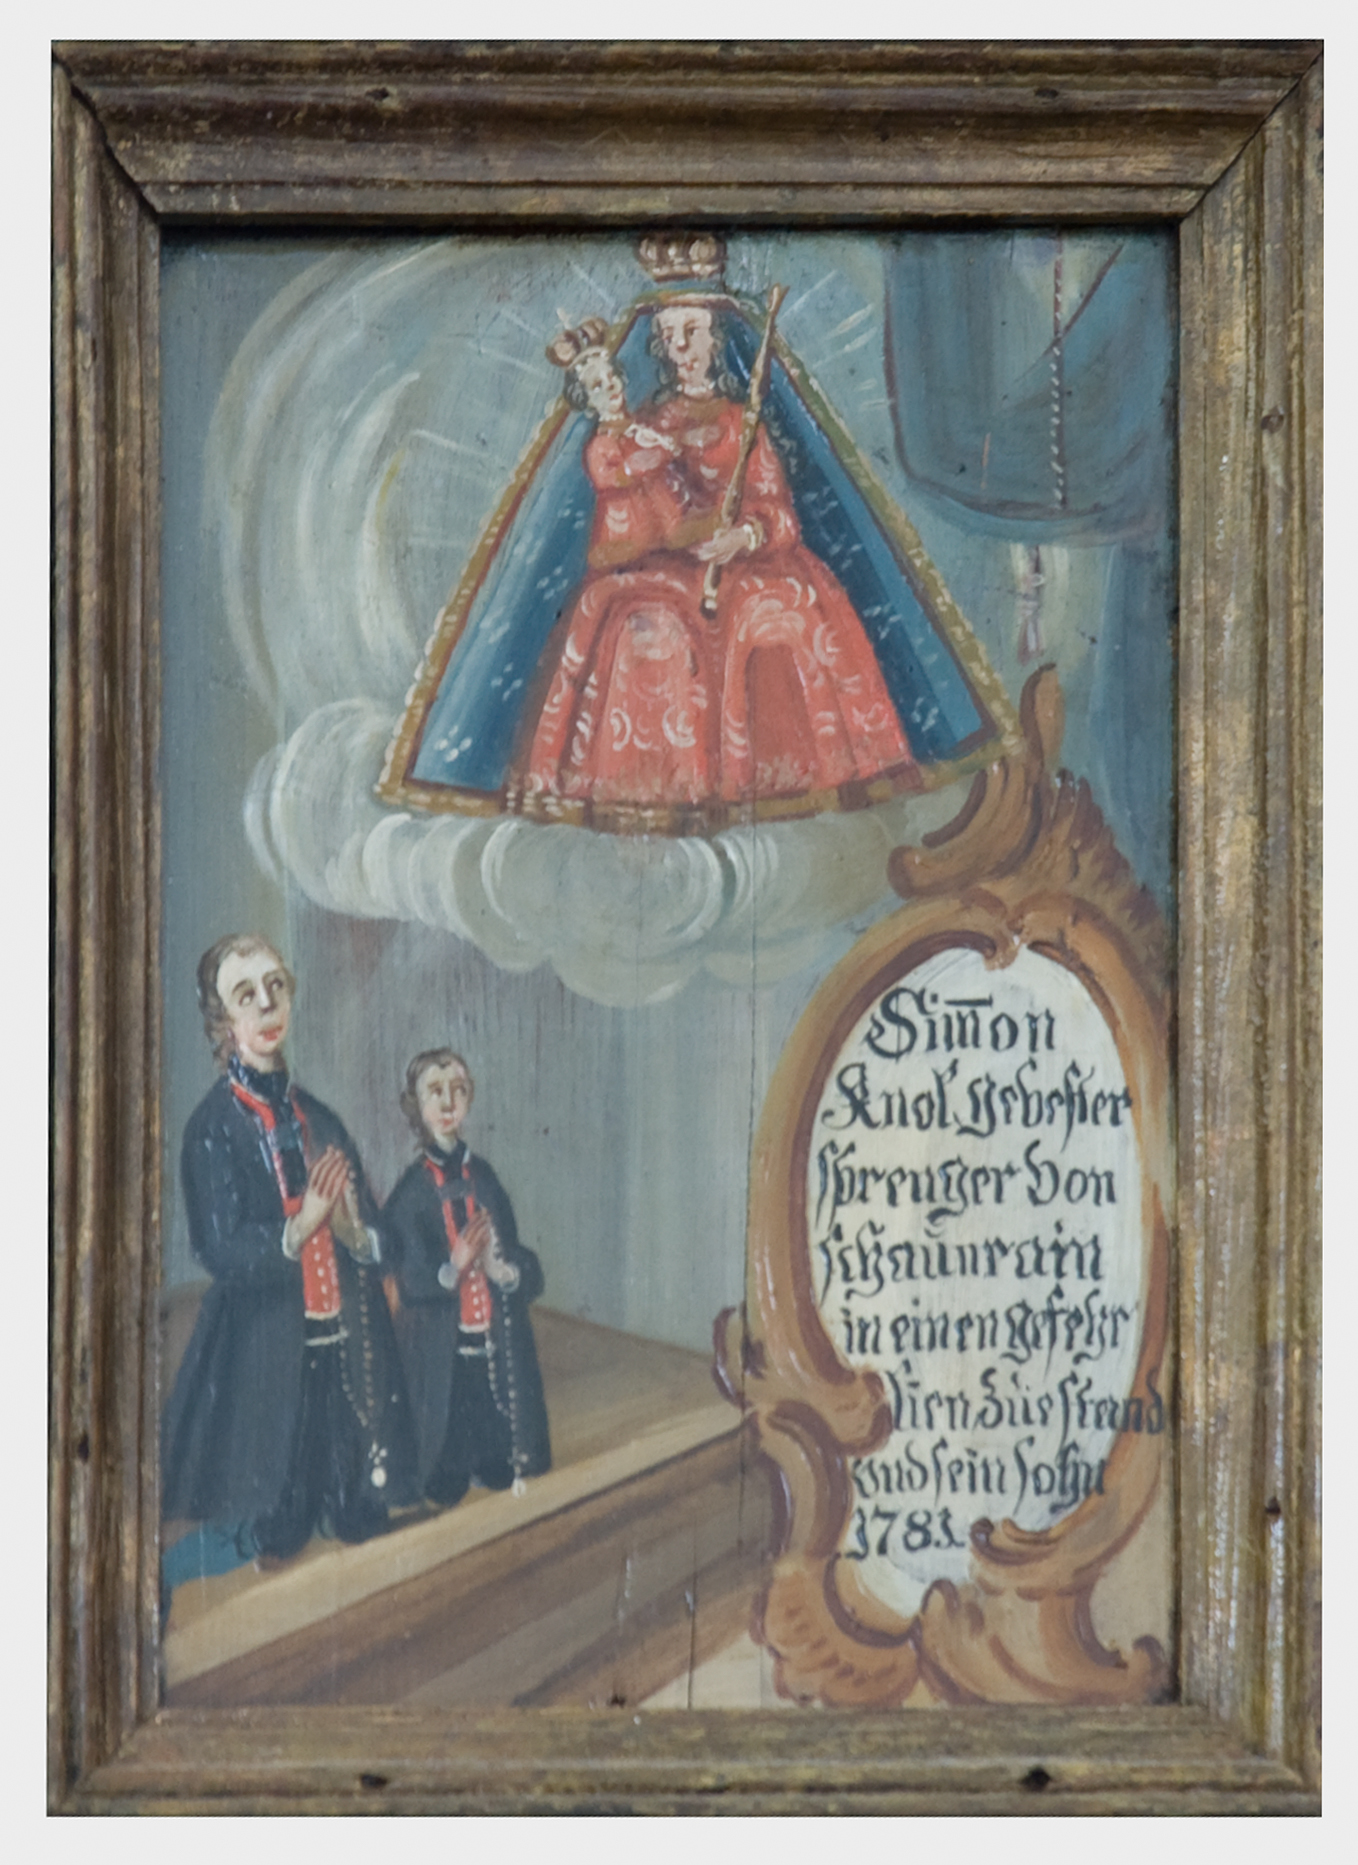 Sim̅on
Knol gevester
sprenger von
schaŭnrain
in einen gefehr
lien Züe stand
vnd sein sohn
1781.